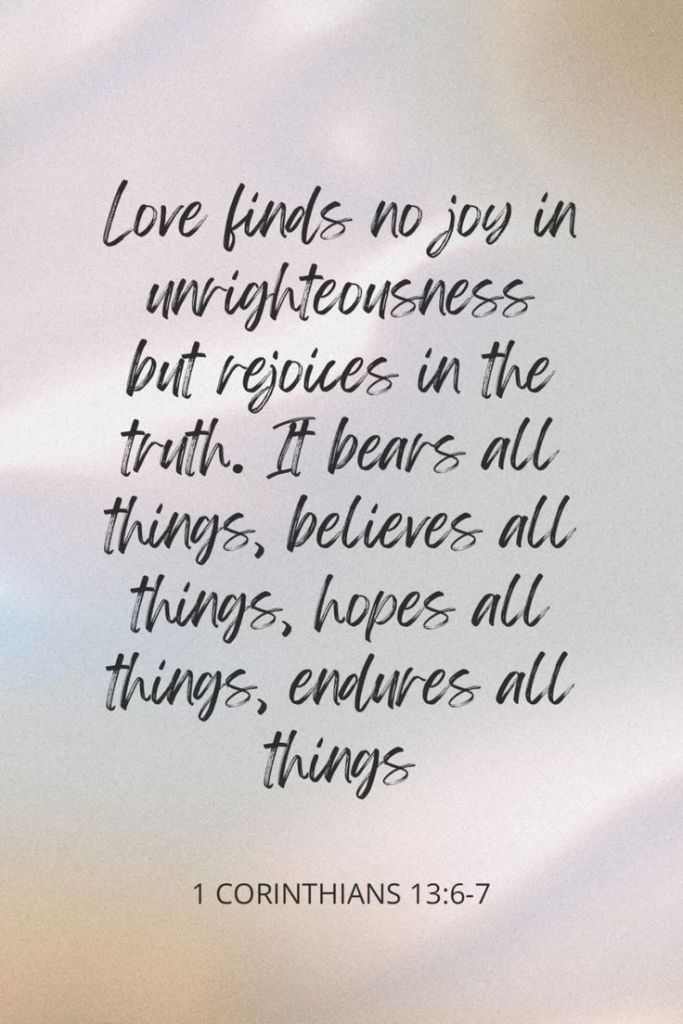 Love finds no joy in
unrighteousness
but rejoices in the
truth. It bears all
things, believes all
things, hopes all
things, endures all
things
1 CORINTHIANS 13:6-7